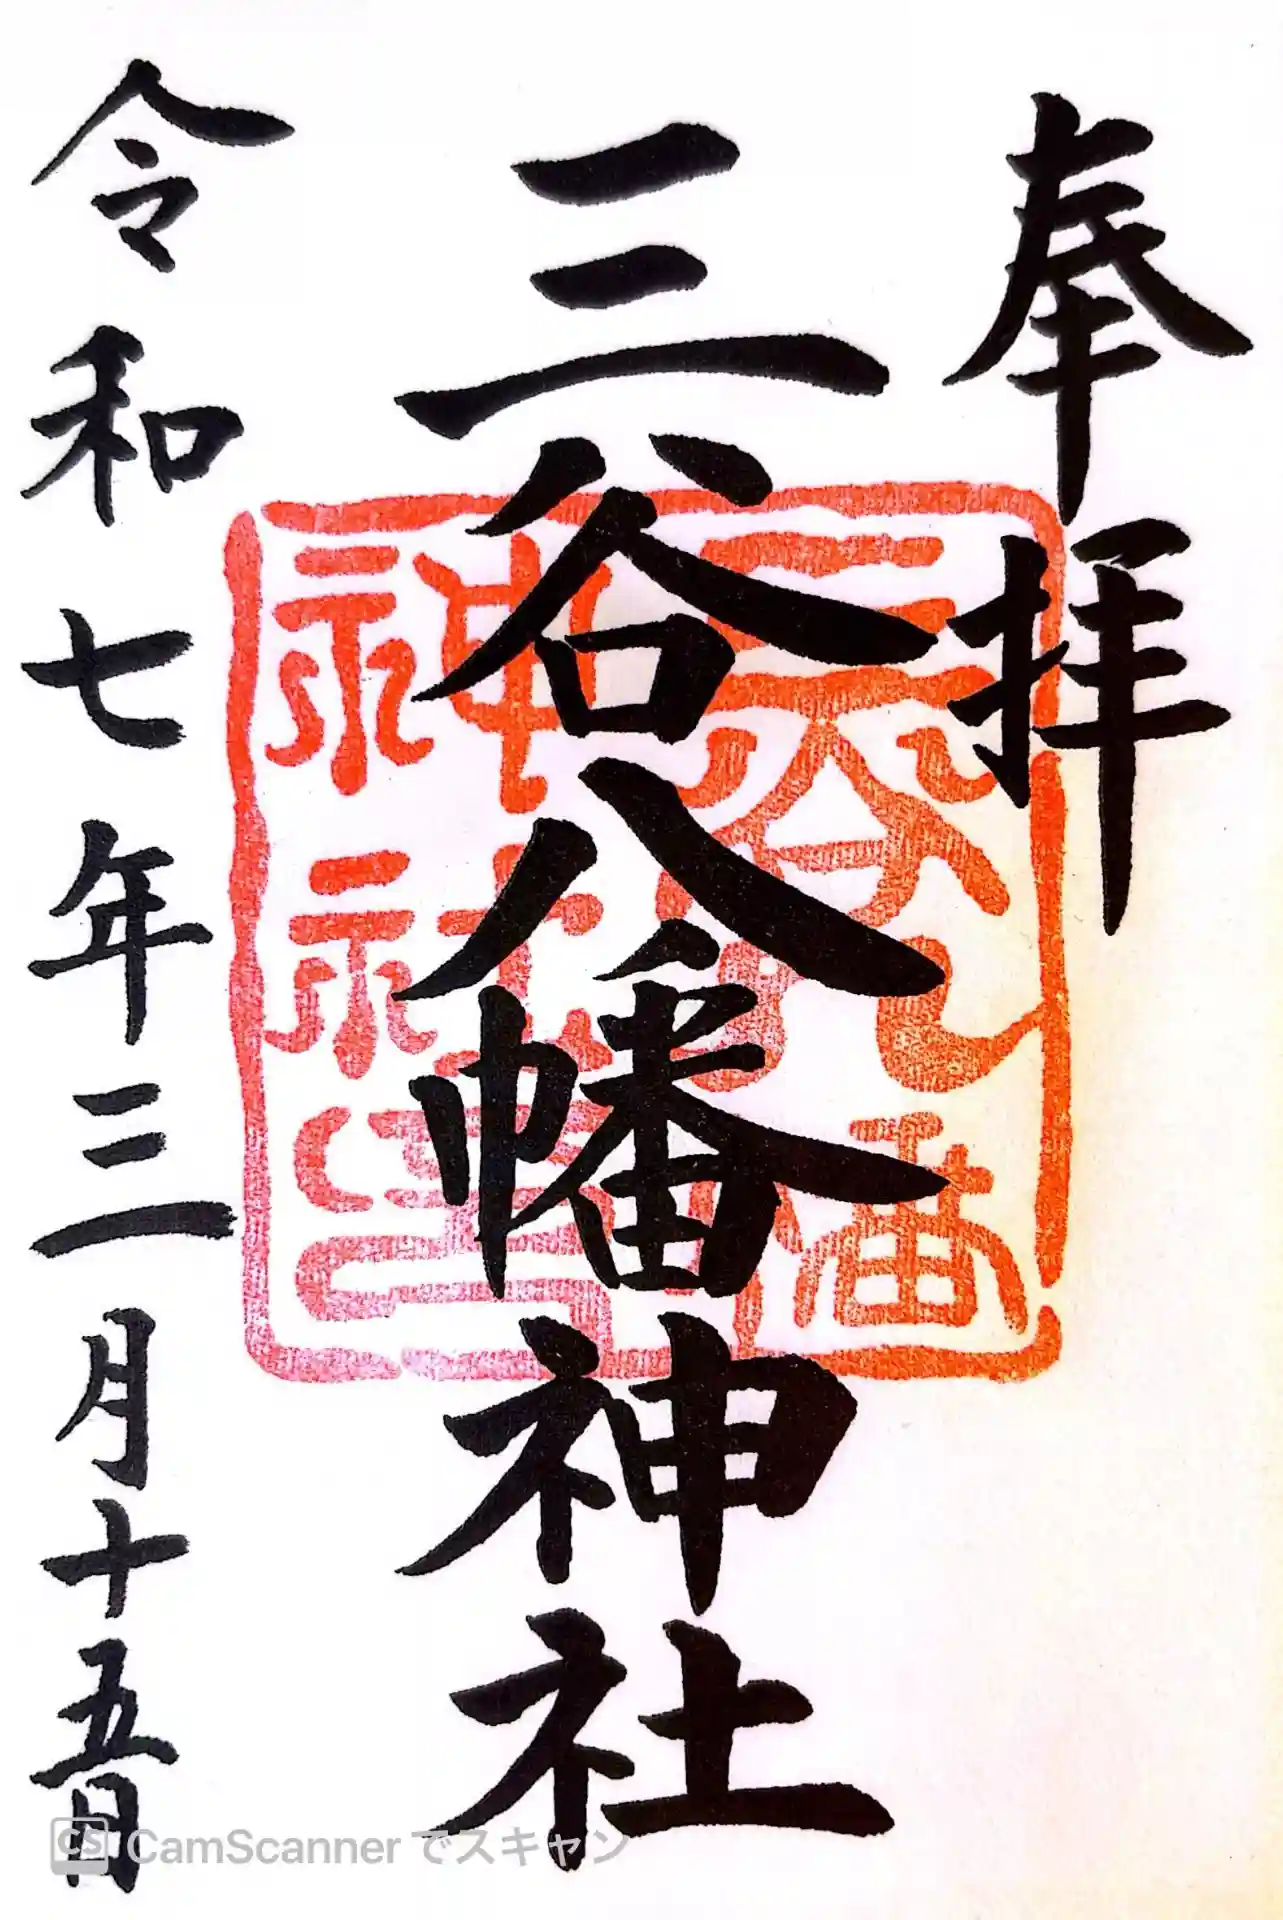 奉拝
三谷八幡神社
令和七年三月十五日
三谷八幡
神社
CS CamScannerでスキャン